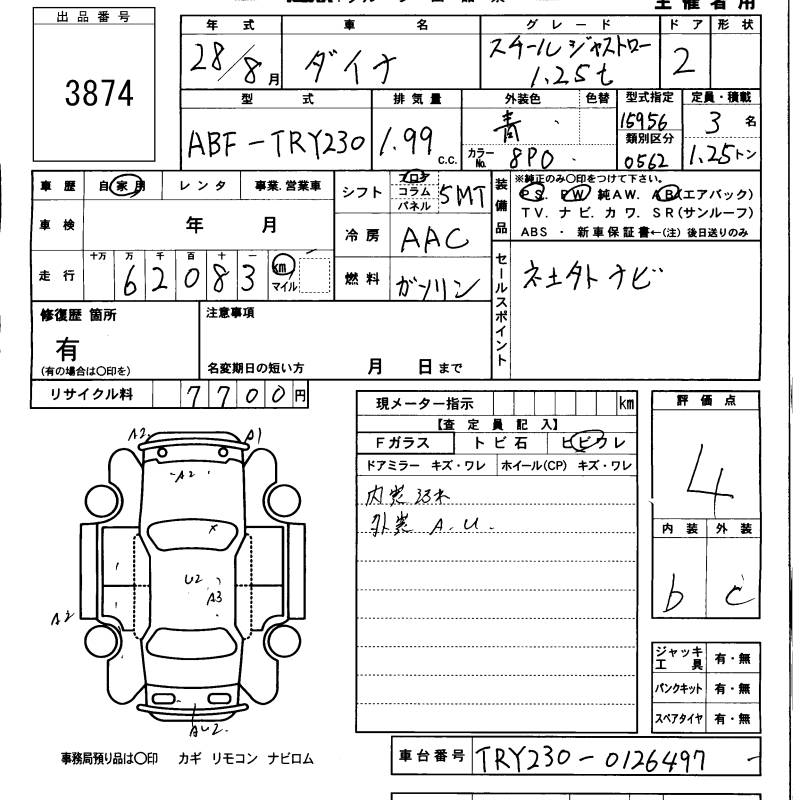 主催者用
出品番号
3874
年式 車名 グレード ドア 形状
28/8月 ダイナ スチールジャストロー 1.25t 2
型式 排気量 外装色 色替 型式指定 定員・積載
ABF-TRY230 1.99 c.c. 青 15956 3名
カラーNo. 8P0 類別区分 0562 1.25トン
車歴 自家用 レンタ 事業.営業車
車検 年 月
走行 十万 万 千 百 十 一
62083 km マイル
シフト フロア コラム パネル 5MT
冷房 AAC
燃料 ガソリン
装備品 ※純正のみ○印をつけて下さい。
PS. PW 純AW. AB(エアバック)
TV. ナビ. カワ. SR(サンルーフ)
ABS ・ 新車保証書←(注) 後日送りのみ
セールスポイント
社外ナビ
修復歴 箇所
有
(有の場合は○印を)
注意事項
名変期日の短い方 月 日まで
リサイクル料 7700円
現メーター指示 km
【査定員記入】
Fガラス トビ石 ヒビワレ
ドアミラー キズ・ワレ ホイール(CP) キズ・ワレ
内装
外装 A.U.
評価点
4
内装 外装
b c
ジャッキ工具 有・無
パンクキット 有・無
スペアタイヤ 有・無
A2 A1
A2
x
U2
A3
A2
AU2
事務局預り品は○印 カギ リモコン ナビロム
車台番号 TRY230-0126497